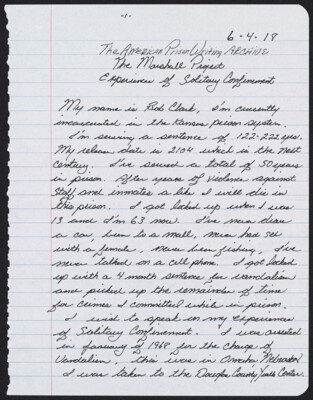 -1-
6-4-18
The American Prison Writing ARCHIVE
The Marshall Project
Experiences of Solitary Confinement
My name is Rod Clark, I'm currently
incarcerated in the Kansas prison system.
I'm serving a sentence of 122-222 yrs.
My release date is 2104 which in the next
century. I've served a total of 50 years
in prison. After years of violence against
staff and inmates a like I will die in
this prison. I got locked up when I was
13 and I'm 63 now. I've never drove
a car, been to a mall, never had sex
with a female, never been fishing, I've
never talked on a cell phone. I got locked
up with a 4 month sentence for vandalism
and picked up the remainder of time
for crimes I committed while in prison.
I wish to speak on my experiences
of Solitary Confinement. I was arrested
in January of 1968 for the charge of
Vandalism, this was in Omaha Nebraska
I was taken to the Douglas County Youth Center.